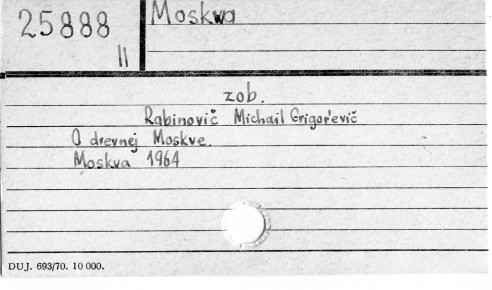 25888
II
Moskwa
zob.
Rabinovič Michail Grigor'evič
O drevnej Moskve.
Moskva 1964
DUJ. 693/70. 10 000.